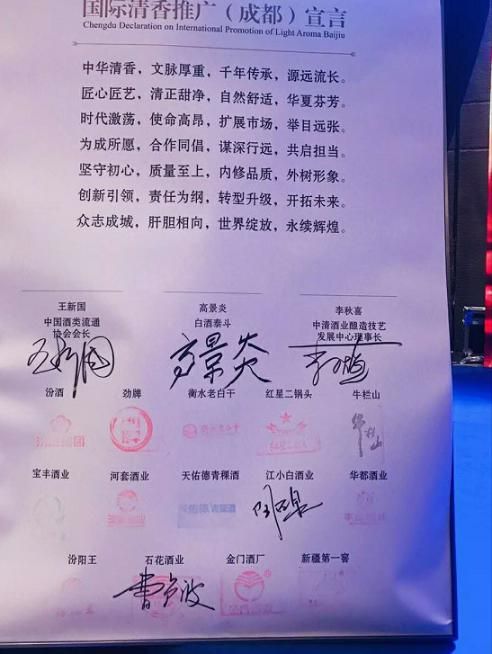 国际清香推广（成都）宣言
Chengdu Declaration on International Promotion of Light Aroma Baijiu
中华清香，文脉厚重，千年传承，源远流长。
匠心匠艺，清正甜净，自然舒适，华夏芬芳。
时代激荡，使命高昂，扩展市场，举目远张。
为成所愿，合作同倡，谋深行远，共启担当。
坚守初心，质量至上，内修品质，外树形象。
创新引领，责任为纲，转型升级，开拓未来。
众志成城，肝胆相向，世界绽放，永续辉煌。
王新国 高景炎 李秋喜
中国酒类流通 白酒泰斗 中清酒业酿造技艺
协会会长 发展中心理事长
王新国 高景炎
汾酒 劲牌 衡水老白干 红星二锅头 牛栏山
牛栏山
宝丰酒业 河套酒业 天佑德青稞酒 江小白酒业 华都酒业
天佑德青稞酒
汾阳王 石花酒业 金门酒厂 新疆第一窖